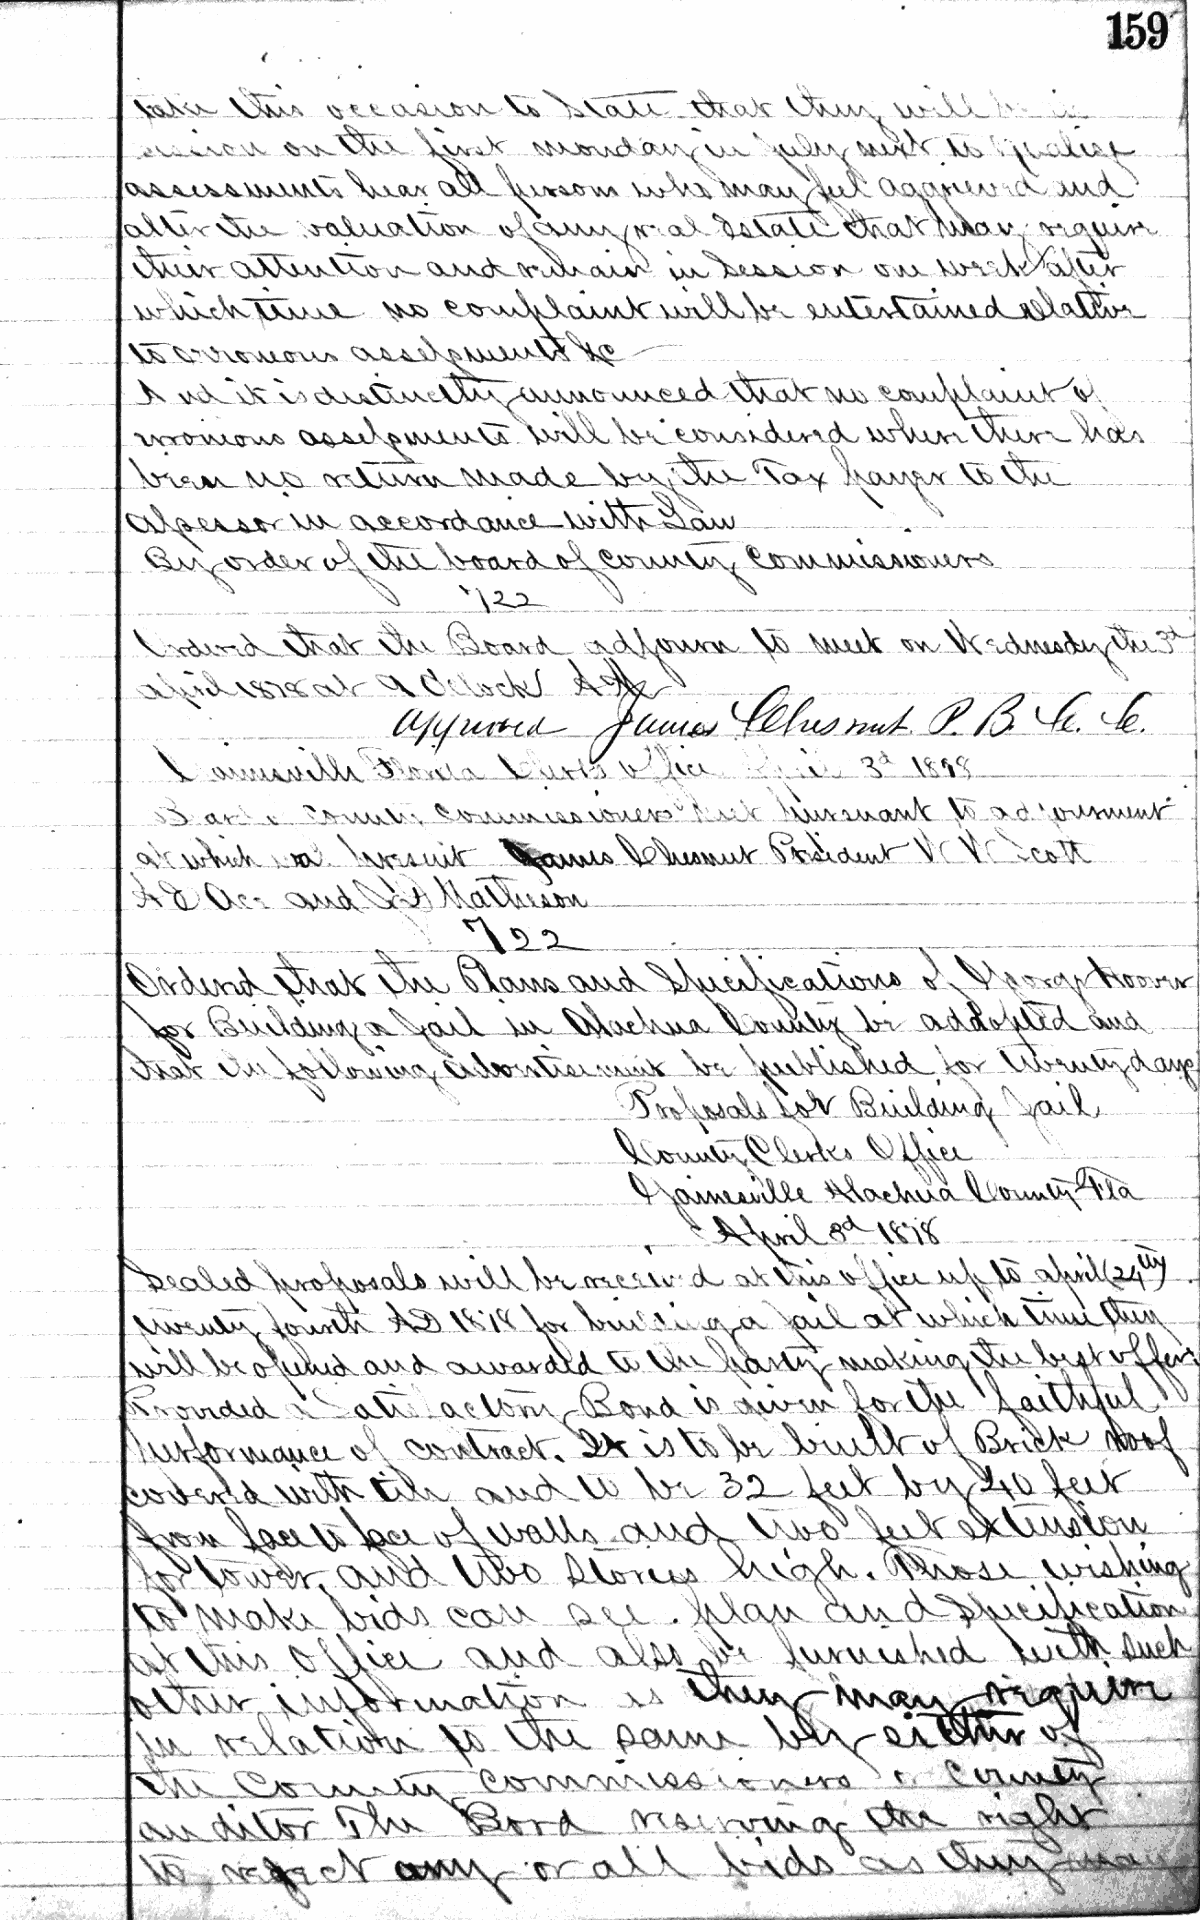 159
take this occasion to State that they will be in
session on the first monday in July next to Equalise
assessments hear all persons who may feel aggrieved and
alter the valuation of any real Estate that may require
their attention and remain in Session one week after
which time no complaint will be entertained relative
to erroneous assessments &c
And it is distinctly announced that no complaint of
erronious assessments will be considered where there has
been no return made by the Tax payer to the
assessor in accordance with Law
By order of the board of county Commissioners
722
Ordered that the Board adjourn to meet on Wednesday the 3d
april 1878 at 9 Oclock AM
approved James Chesnut P. B. C. C.
Gainesville Florida Clerks office April 3d 1878
Board County Commissioners met pursuant to adjournment
at which was present James Chesnut President W W Scott
and Matheson
722
Ordered that the Plans and Specifications of George Hoover
for Building a Jail in Alachua County be addopted and
that the following advertisement be published for twenty days
Proposals for Building Jail
County Clerks Office
Gainesville Alachua County Fla
April 3d 1878
Sealed proposals will be received at this office up to april (24th)
twenty fourth AD 1878 for building a jail at which time they
will be opened and awarded to the party making the best offer
Provided a Satisfactory Bond is given for the faithful
performance of contract. It is to be built of Brick roof
covered with tin and to be 32 feet by 40 feet
from face to face of walls and two feet extension
for tower, and two Stories high. Those wishing
to make bids can see plan and Specification
at this office and also be furnished with such
other information as they may require
in relation to the same by either of
the County commissioners or County
auditor The Bord reserving the right
to reject any or all bids as they may